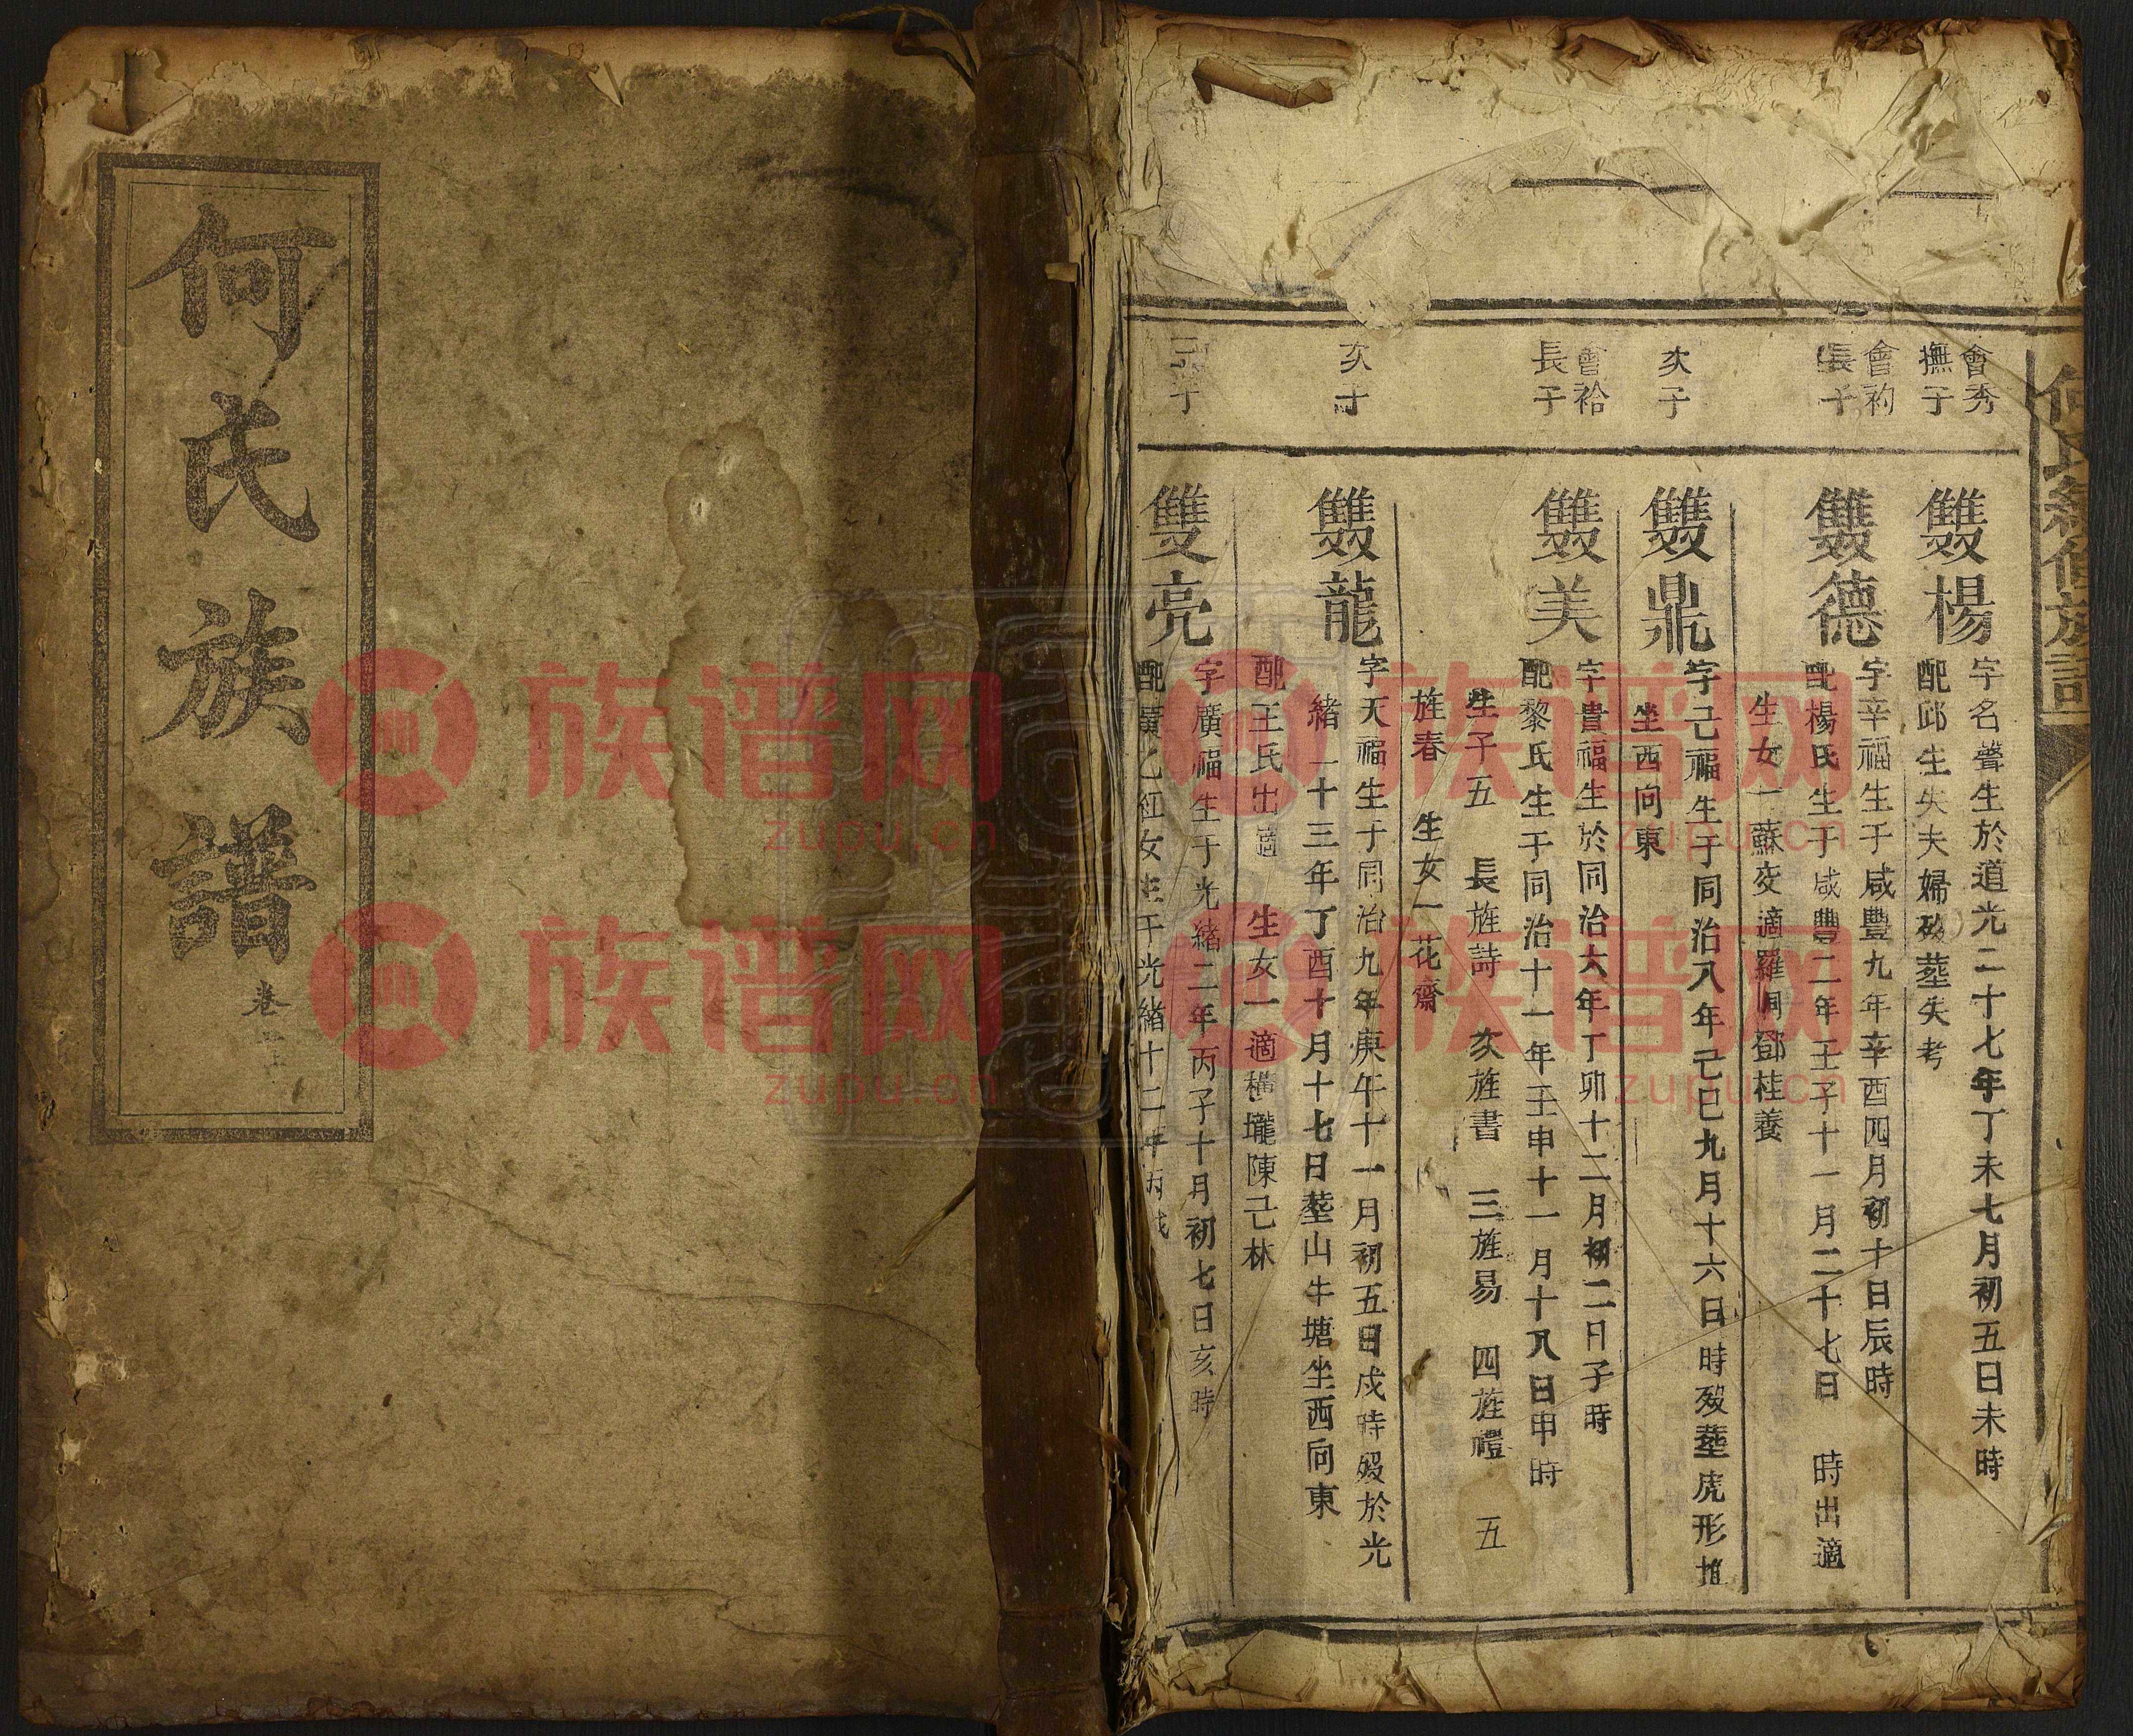 何氏族譜
卷
何氏續修族譜
會秀
撫子
雙楊
字名聲生於道光二十七年丁未七月初五日未時
配邱生失夫婦歿塟失考
會礿
長子
雙德
字辛福生于咸豐九年辛酉四月初十日辰時
配楊氏生于咸豐二年壬子十一月二十七日 時出適
生女一蘇交適羅洞鄧桂養
次子
雙鼎
字己福生于同治八年己巳九月十六日時歿塟虎形
坐西向東
會祫
長子
雙美
字貴福生於同治六年丁卯十二月初二日子時
配黎氏生于同治十一年壬申十一月十八日申時
生子五 長旌詩 次旌書 三旌易 四旌禮 五
旌春 生女一花齋
次子
雙龍
字天福生于同治九年庚午十一月初五日戌時歿於光
緒二十三年丁酉十月十七日塟山牛塘坐西向東
配王氏出適 生女一適橫壠陳己林
三子
雙亮
字廣福生于光緒二年丙子十月初七日亥時
配廣乙紅女生于光緒十二年丙戌
族谱网
zupu.cn
族谱网
zupu.cn
族谱网
zupu.cn
族谱网
zupu.cn